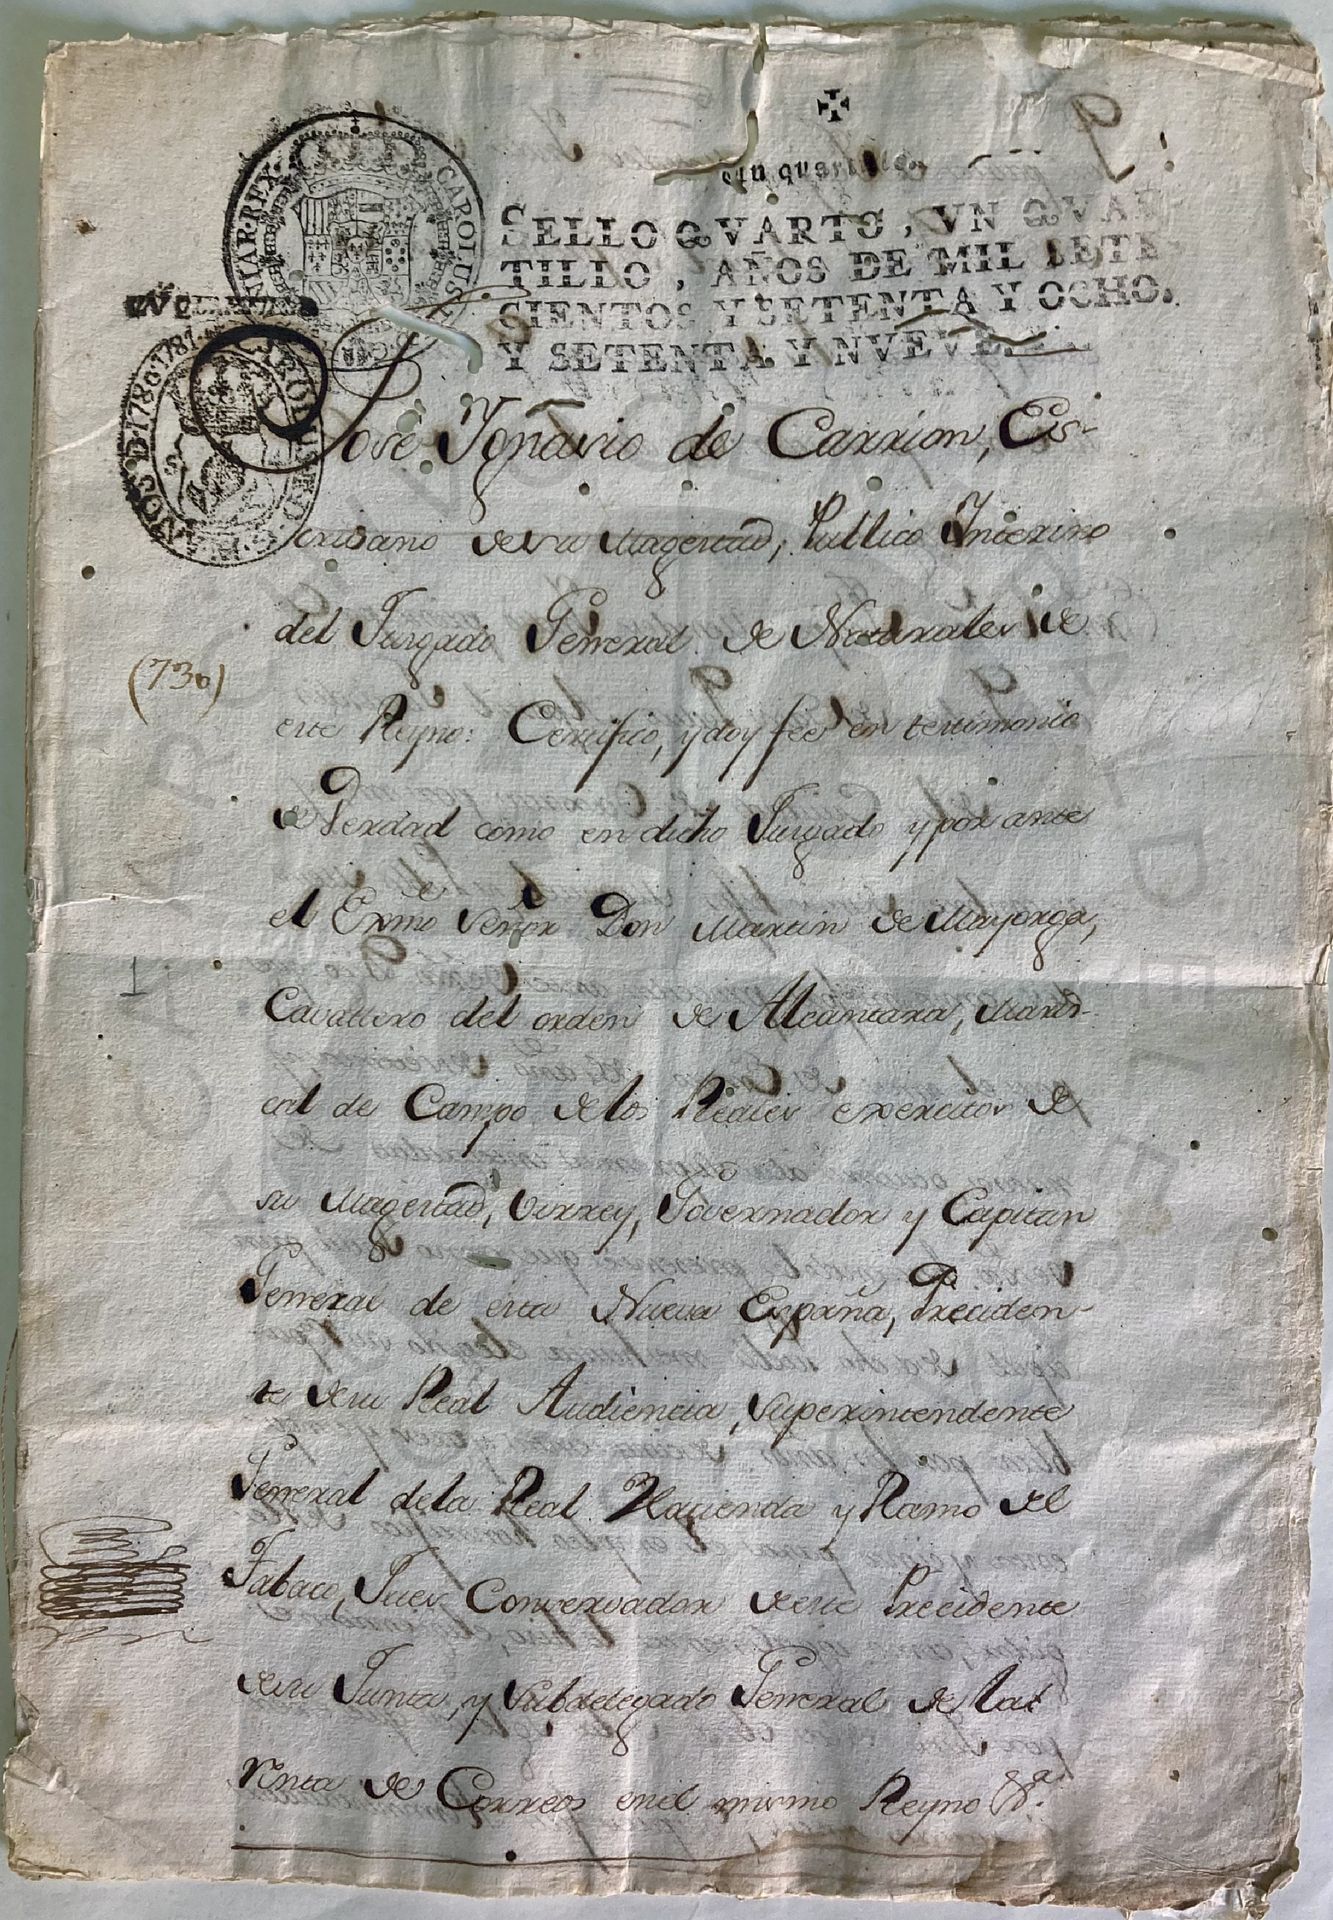 Un quartillo.
SELLO QVARTO, VN QVAR-
TILLO, AÑOS DE MIL SETE
CIENTOS Y SETENTA Y OCHO,
Y SETENTA Y NVEVE.
CAROLUS
MAR. REX
AÑOS D 1780. 1781.
Josè Ygnasio de Carrion, Es-
cribano de su Magestad, Publico Interino
del Jusgado General de Naturales de
este Reyno: Certifico, y doy feé en testimonio
de Verdad como en dicho Jusgado y por ante
el Exmo Señor Don Martin de Mayorga,
Cavallero del orden de Alcantara, Maris-
cal de Campo de los Reales exercitos de
su Magestad, Virrey, Governador y Capitan
General de esta Nueva España, Preciden-
te de su Real Audiencia, Superintendente
General de la Real Hacienda y Ramo del
Tabaco, Jues Conservador de este Precidente
de su Junta, y Subdelegado General de la
renta de Correos en el mismo Reyno &a.
(730)
1